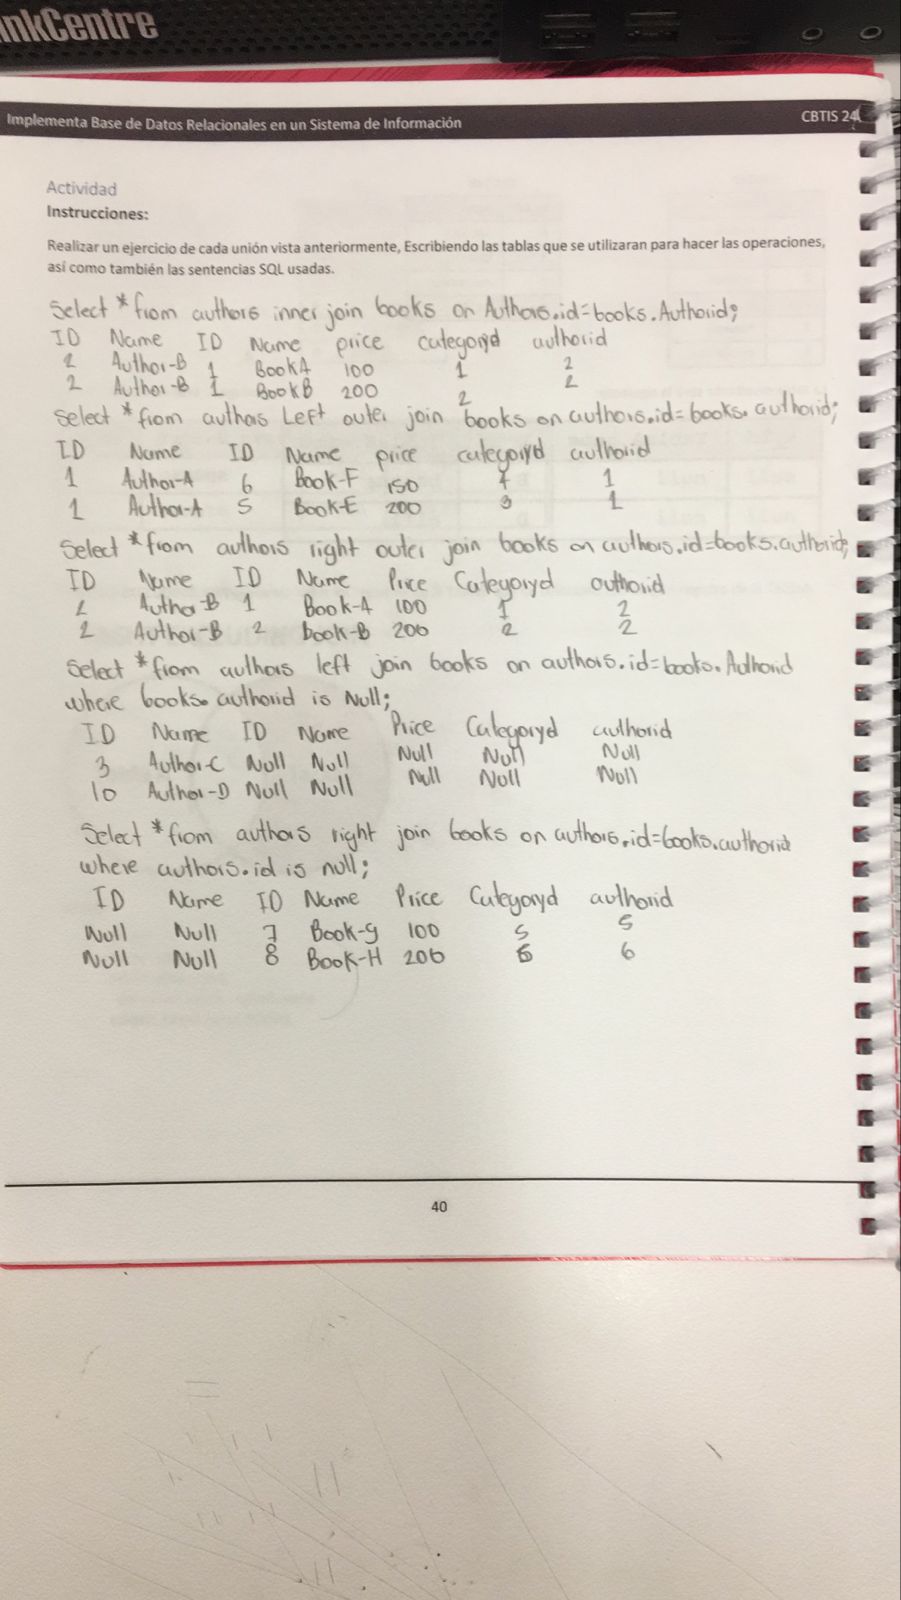 inkCentre
Implementa Base de Datos Relacionales en un Sistema de Información CBTIS 24
Actividad
Instrucciones:
Realizar un ejercicio de cada unión vista anteriormente, Escribiendo las tablas que se utilizaran para hacer las operaciones,
así como también las sentencias SQL usadas.
Select * from authors inner join books on Authors.id=books.Authorid;
ID Name ID Name price categoryd authorid
2 Author-B 1 BookA 100 1 2
2 Author-B 1 BookB 200 2 2
Select * from authors Left outer join books on authors.id=books.authorid;
ID Name ID Name price categoryd authorid
1 Author-A 6 Book-F 150 4 1
1 Author-A 5 Book-E 200 3 1
Select * from authors right outer join books on authors.id=books.authorid;
ID Name ID Name Price Categoryd authorid
2 Author-B 1 Book-A 100 1 2
2 Author-B 2 book-B 200 2 2
Select * from authors left join books on authors.id=books.Authorid
where books.authorid is Null;
ID Name ID Name Price Categoryd authorid
3 Author-C Null Null Null Null Null
10 Author-D Null Null Null Null Null
Select * from authors right join books on authors.id=books.authorid
where authors.id is null;
ID Name ID Name Price Categoryd authorid
Null Null 7 Book-g 100 5 5
Null Null 8 Book-H 200 6 6
40